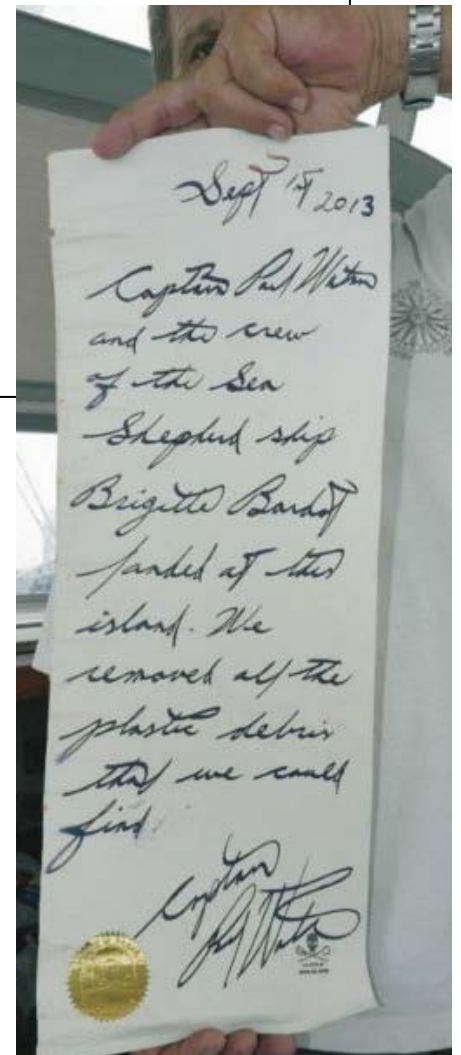 Sept 1st 2013
Captain Paul Watson
and the crew
of the Sea
Shepherd ship
Brigitte Bardot
landed at this
island. We
removed all the
plastic debris
that we could
find.
Captain
Paul Watson